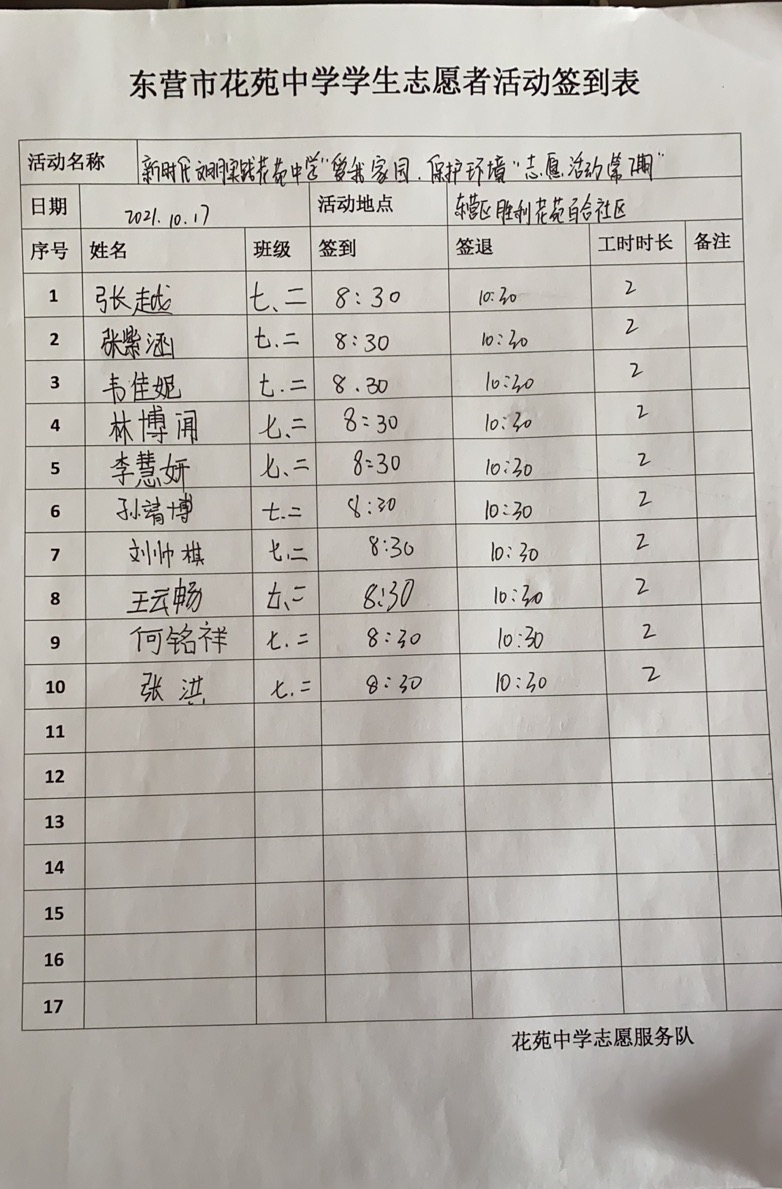 东营市花苑中学学生志愿者活动签到表
活动名称 新时代文明实践花苑中学"爱我家园．保护环境"志愿活动第7期"
日期 2021.10.17 活动地点 东营区胜利花苑百合社区
序号 姓名 班级 签到 签退 工时时长 备注
1 张越 七、二 8:30 10:30 2
2 张紫涵 七．二 8:30 10:30 2
3 韦佳妮 七．二 8.30 10:30 2
4 林博闻 七、二 8:30 10:30 2
5 李慧妍 七、二 8:30 10:30 2
6 孙靖博 七．二 8:30 10:30 2
7 刘帅棋 七．二 8:30 10:30 2
8 王云畅 七、二 8:30 10:30 2
9 何铭祥 七．二 8:30 10:30 2
10 张洪 七．二 8:30 10:30 2
11
12
13
14
15
16
17
花苑中学志愿服务队